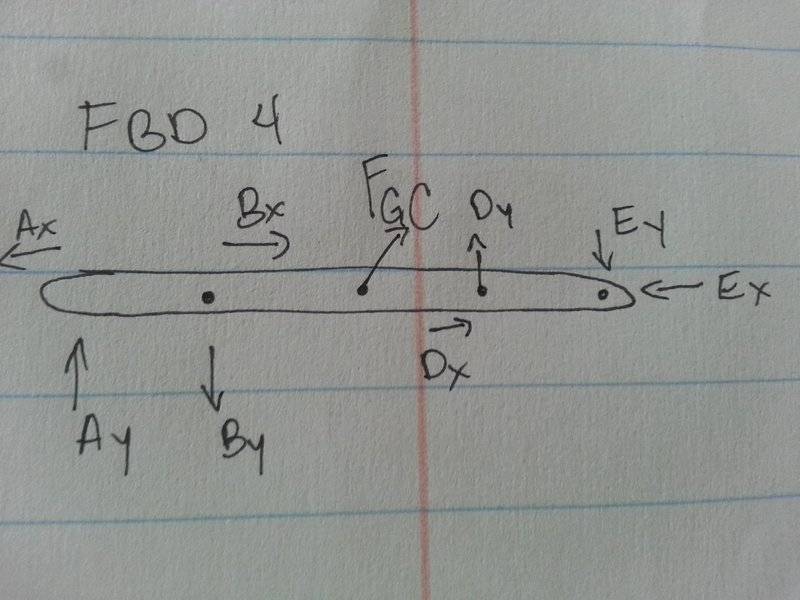 FBD 4
Ax Bx FGC Dy Ey
Ex
Dx
Ay By